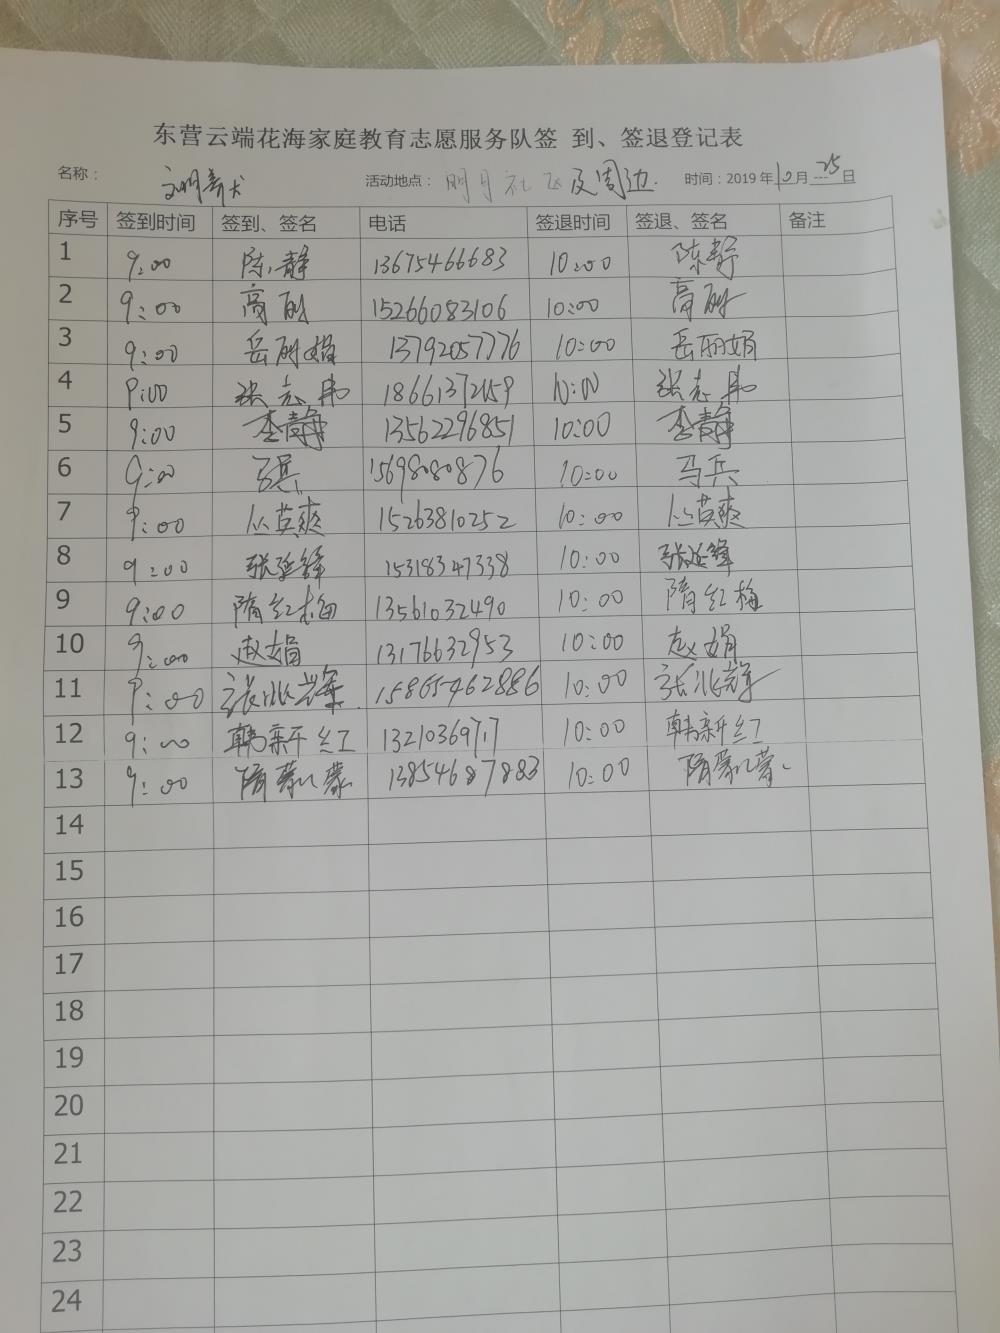 东营云端花海家庭教育志愿服务队签 到、签退登记表
名称： 文明养犬 活动地点： 明月社区及周边. 时间：2019年10月25日
序号 签到时间 签到、签名 电话 签退时间 签退、签名 备注
1 9:00 陈静 13675466683 10:00 陈静
2 9:00 高丽 15266083106 10:00 高丽
3 9:00 岳丽娟 13792057776 10:00 岳丽娟
4 9:00 张志伟 10:00 张志伟
5 9:00 李静 13562296851 10:00 李静
6 9:00 马兵 15698080876 10:00 马兵
7 9:00 丛英爽 15263810252 10:00 丛英爽
8 9:00 张延锋 15318347338 10:00 张延锋
9 9:00 隋红梅 13561032490 10:00 隋红梅
10 9:00 赵娟 13176632953 10:00 赵娟
11 9:00 张兆辉 15865462886 10:00 张兆辉
12 9:00 韩新红 10:00 韩新红
13 9:00 隋蒙蒙 13854687883 10:00 隋蒙蒙
14
15
16
17
18
19
20
21
22
23
24